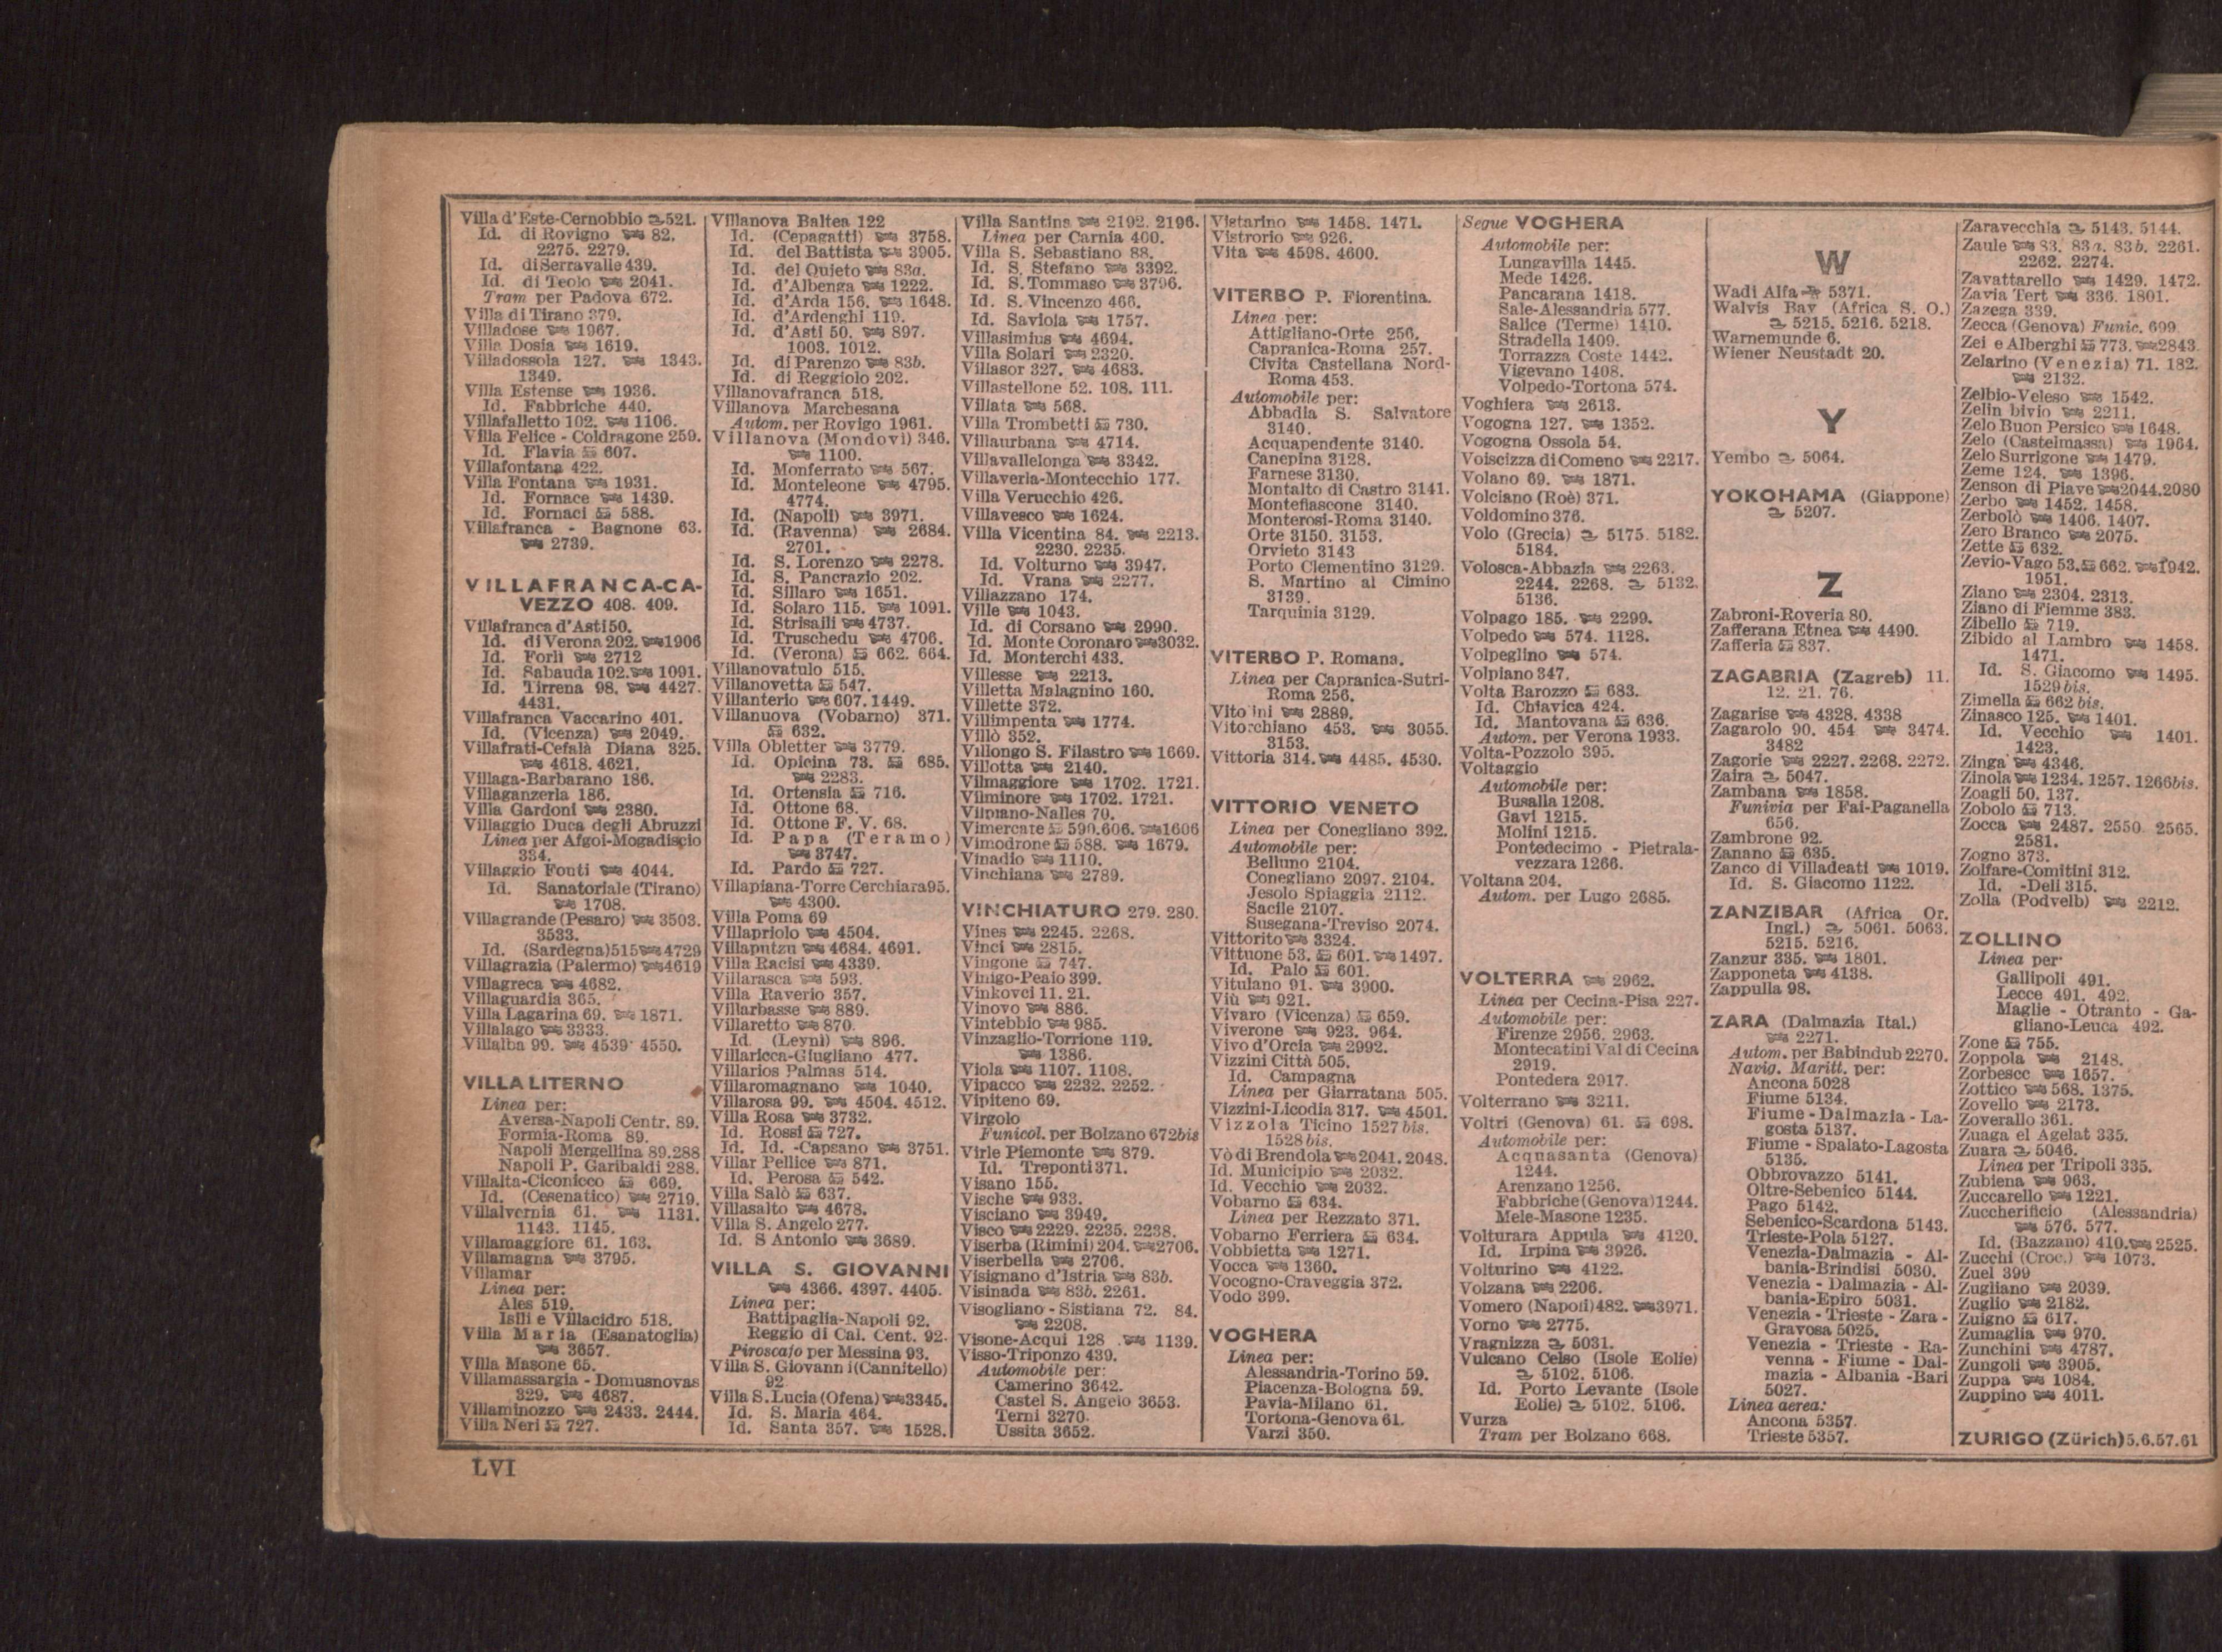 Villa d'Este-Cernobbio 521.
Id. di Rovigno 82.
2275. 2279.
Id. di Serravalle 439.
Id. di Teolo 2041.
Tram per Padova 672.
Villa di Tirano 379.
Villadose 1967.
Villa Dosia 1619.
Villadossola 127. 1343.
1349.
Villa Estense 1936.
Id. Fabbriche 440.
Villafalletto 102. 1106.
Villa Felice - Coldragone 259.
Id. Flavia 607.
Villafontana 422.
Villa Fontana 1931.
Id. Fornace 1439.
Id. Fornaci 588.
Villafranca - Bagnone 63.
2739.
VILLAFRANCA-CA-
VEZZO 408. 409.
Villafranca d'Asti 50.
Id. di Verona 202. 1906
Id. Forlì 2712
Id. Sabauda 102. 1091.
Id. Tirrena 98. 4427.
4431.
Villafranca Vaccarino 401.
Id. (Vicenza) 2049.
Villafrati-Cefalà Diana 325.
4618. 4621.
Villaga-Barbarano 186.
Villaganzerla 186.
Villa Gardoni 2380.
Villaggio Duca degli Abruzzi
Linea per Afgoi-Mogadiscio
334.
Villaggio Fouti 4044.
Id. Sanatoriale (Tirano)
1708.
Villagrande (Pesaro) 3503.
3533.
Id. (Sardegna) 515 4729
Villagrazia (Palermo) 4619
Villagreca 4682.
Villaguardia 365.
Villa Lagarina 69. 1871.
Villalago 3333.
Villalba 99. 4539 4550.
VILLA LITERNO
Linea per:
Aversa-Napoli Centr. 89.
Formia-Roma 89.
Napoli Mergellina 89.288
Napoli P. Garibaldi 288.
Villalta-Ciconicco 669.
Id. (Cesenatico) 2719.
Villalvernia 61. 1131.
1143. 1145.
Villamaggiore 61. 163.
Villamagna 3795.
Villamar
Linea per:
Ales 519.
Isili e Villacidro 518.
Villa Maria (Esanatoglia)
3657.
Villa Masone 65.
Villamassargia - Domusnovas
329. 4687.
Villaminozzo 2433. 2444.
Villa Neri 727.
Villanova Baltea 122
Id. (Cepagatti) 3758.
Id. del Battista 3905.
Id. del Quieto 83a.
Id. d'Albenga 1222.
Id. d'Arda 156. 1648.
Id. d'Ardenghi 119.
Id. d'Asti 50. 897.
1003. 1012.
Id. di Parenzo 83b.
Id. di Reggiolo 202.
Villanovafranca 518.
Villanova Marchesana
Autom. per Rovigo 1961.
Villanova (Mondovì) 346.
1100.
Id. Monferrato 567.
Id. Monteleone 4795.
4774.
Id. (Napoli) 3971.
Id. (Ravenna) 2684.
2701.
Id. S. Lorenzo 2278.
Id. S. Pancrazio 202.
Id. Sillaro 1651.
Id. Solaro 115. 1091.
Id. Strisaili 4737.
Id. Truschedu 4706.
Id. (Verona) 662. 664.
Villanovatulo 515.
Villanovetta 547.
Villanterio 607. 1449.
Villanuova (Vobarno) 371.
632.
Villa Obletter 3779.
Id. Opicina 73. 685.
2283.
Id. Ortensia 716.
Id. Ottone 68.
Id. Ottone F. V. 68.
Id. Papa (Teramo)
3747.
Id. Pardo 727.
Villapiana-Torre Cerchiara 95.
4300.
Villa Poma 69
Villapriolo 4504.
Villaputzu 4684. 4691.
Villa Racisi 4339.
Villarasca 593.
Villa Raverio 357.
Villarbasse 889.
Villaretto 870.
Id. (Leynì) 896.
Villaricca-Giugliano 477.
Villarios Palmas 514.
Villaromagnano 1040.
Villarosa 99. 4504. 4512.
Villa Rosa 3732.
Id. Rossi 727.
Id. Id. -Capsano 3751.
Villar Pellice 871.
Id. Perosa 542.
Villa Salò 637.
Villasalto 4678.
Villa S. Angelo 277.
Id. S Antonio 3689.
VILLA S. GIOVANNI
4366. 4397. 4405.
Linea per:
Battipaglia-Napoli 92.
Reggio di Cal. Cent. 92.
Piroscafo per Messina 93.
Villa S. Giovanni (Cannitello)
92
Villa S. Lucia (Ofena) 3345.
Id. S. Maria 464.
Id. Santa 357. 1528.
Villa Santina 2192. 2196.
Linea per Carnia 400.
Villa S. Sebastiano 88.
Id. S. Stefano 3392.
Id. S. Tommaso 3796.
Id. S. Vincenzo 466.
Id. Saviola 1757.
Villasimius 4694.
Villa Solari 2320.
Villasor 327. 4683.
Villastellone 52. 108. 111.
Villata 568.
Villa Trombetti 730.
Villaurbana 4714.
Villavallelonga 3342.
Villaverla-Montecchio 177.
Villa Verucchio 426.
Villavesco 1624.
Villa Vicentina 84. 2213.
2230. 2235.
Id. Volturno 3947.
Id. Vrana 2277.
Villazzano 174.
Ville 1043.
Id. di Corsano 2990.
Id. Monte Coronaro 3032.
Id. Monterchi 433.
Villesse 2213.
Villetta Malagnino 160.
Villette 372.
Villimpenta 1774.
Villò 352.
Villongo S. Filastro 1669.
Villotta 2140.
Vilmaggiore 1702. 1721.
Vilminore 1702. 1721.
Vilpiano-Nalles 70.
Vimercate 590.606. 1606
Vimodrone 588. 1679.
Vinadio 1110.
Vinchiana 2789.
VINCHIATURO 279. 280.
Vines 2245. 2268.
Vinci 2815.
Vingone 747.
Vinigo-Peaio 399.
Vinkovci 11. 21.
Vinovo 886.
Vintebbio 985.
Vinzaglio-Torrione 119.
1386.
Viola 1107. 1108.
Vipacco 2232. 2252.
Vipiteno 69.
Virgolo
Funicol. per Bolzano 672bis
Virle Piemonte 879.
Id. Treponti 371.
Visano 155.
Vische 933.
Visciano 3949.
Visco 2229. 2235. 2238.
Viserba (Rimini) 204. 2706.
Viserbella 2706.
Visignano d'Istria 83b.
Visinada 83b. 2261.
Visogliano - Sistiana 72. 84.
2208.
Visone-Acqui 128 1139.
Visso-Triponzo 439.
Automobile per:
Camerino 3642.
Castel S. Angelo 3653.
Terni 3270.
Ussita 3652.
Vistarino 1458. 1471.
Vistrorio 926.
Vita 4598. 4600.
VITERBO P. Fiorentina.
Linea per:
Attigliano-Orte 256.
Capranica-Roma 257.
Civita Castellana Nord-
Roma 453.
Automobile per:
Abbadia S. Salvatore
3140.
Acquapendente 3140.
Canepina 3128.
Farnese 3130.
Montalto di Castro 3141.
Montefiascone 3140.
Monterosi-Roma 3140.
Orte 3150. 3153.
Orvieto 3143
Porto Clementino 3129.
S. Martino al Cimino
3139.
Tarquinia 3129.
VITERBO P. Romana.
Linea per Capranica-Sutri-
Roma 256.
Vito ini 2889.
Vitorchiano 453. 3055.
3153.
Vittoria 314. 4485. 4530.
VITTORIO VENETO
Linea per Conegliano 392.
Automobile per:
Belluno 2104.
Conegliano 2097. 2104.
Jesolo Spiaggia 2112.
Sacile 2107.
Susegana-Treviso 2074.
Vittorito 3324.
Vittuone 53. 601. 1497.
Id. Palo 601.
Vitulano 91. 3900.
Viù 921.
Vivaro (Vicenza) 659.
Viverone 923. 964.
Vivo d'Orcia 2992.
Vizzini Città 505.
Id. Campagna
Linea per Giarratana 505.
Vizzini-Licodia 317. 4501.
Vizzola Ticino 1527bis.
1528bis.
Vò di Brendola 2041. 2048.
Id. Municipio 2032.
Id. Vecchio 2032.
Vobarno 634.
Linea per Rezzato 371.
Vobarno Ferriera 634.
Vobbietta 1271.
Vocca 1360.
Vocogno-Craveggia 372.
Vodo 399.
VOGHERA
Linea per:
Alessandria-Torino 59.
Piacenza-Bologna 59.
Pavia-Milano 61.
Tortona-Genova 61.
Varzi 350.
Segue VOGHERA
Automobile per:
Lungavilla 1445.
Mede 1426.
Pancarana 1418.
Sale-Alessandria 577.
Salice (Terme) 1410.
Stradella 1409.
Torrazza Coste 1442.
Vigevano 1408.
Volpedo-Tortona 574.
Voghiera 2613.
Vogogna 127. 1352.
Vogogna Ossola 54.
Voiscizza di Comeno 2217.
Volano 69. 1871.
Volciano (Roè) 371.
Voldomino 376.
Volo (Grecia) 5175. 5182.
5184.
Volosca-Abbazia 2263.
2244. 2268. 5132.
5136.
Volpago 185. 2299.
Volpedo 574. 1128.
Volpeglino 574.
Volpiano 347.
Volta Barozzo 683.
Id. Chiavica 424.
Id. Mantovana 636.
Autom. per Verona 1933.
Volta-Pozzolo 395.
Voltaggio
Automobile per:
Busalla 1208.
Gavi 1215.
Molini 1215.
Pontedecimo - Pietrala-
vezzara 1266.
Voltana 204.
Autom. per Lugo 2685.
VOLTERRA 2962.
Linea per Cecina-Pisa 227.
Automobile per:
Firenze 2956. 2963.
Montecatini Val di Cecina
2919.
Pontedera 2917.
Volterrano 3211.
Voltri (Genova) 61. 698.
Automobile per:
Acquasanta (Genova)
1244.
Arenzano 1256.
Fabbriche (Genova) 1244.
Mele-Masone 1235.
Volturara Appula 4120.
Id. Irpina 3926.
Volturino 4122.
Volzana 2206.
Vomero (Napoli) 482. 3971.
Vorno 2775.
Vragnizza 5031.
Vulcano Celso (Isole Eolie)
5102. 5106.
Id. Porto Levante (Isole
Eolie) 5102. 5106.
Vurza
Tram per Bolzano 668.
W
Wadi Alfa 5371.
Walvis Bay (Africa S. O.)
5215. 5216. 5218.
Warnemunde 6.
Wiener Neustadt 20.
Y
Yembo 5064.
YOKOHAMA (Giappone)
5207.
Z
Zabroni-Roveria 80.
Zafferana Etnea 4490.
Zafferia 837.
ZAGABRIA (Zagreb) 11.
12. 21. 76.
Zagarise 4328. 4338
Zagarolo 90. 454 3474.
3482
Zagorie 2227. 2268. 2272.
Zaira 5047.
Zambana 1858.
Funivia per Fai-Paganella
656.
Zambrone 92.
Zanano 635.
Zanco di Villadeati 1019.
Id. S. Giacomo 1122.
ZANZIBAR (Africa Or.
Ingl.) 5061. 5063.
5215. 5216.
Zanzur 335. 1801.
Zapponeta 4138.
Zappulla 98.
ZARA (Dalmazia Ital.)
2271.
Autom. per Babindub 2270.
Navig. Maritt. per:
Ancona 5028
Fiume 5134.
Fiume - Dalmazia - La-
gosta 5137.
Fiume - Spalato-Lagosta
5135.
Obbrovazzo 5141.
Oltre-Sebenico 5144.
Pago 5142.
Sebenico-Scardona 5143.
Trieste-Pola 5127.
Venezia-Dalmazia - Al-
bania-Brindisi 5030.
Venezia - Dalmazia - Al-
bania-Epiro 5031.
Venezia - Trieste - Zara -
Gravosa 5025.
Venezia - Trieste - Ra-
venna - Fiume - Dal-
mazia - Albania -Bari
5027.
Linea aerea:
Ancona 5357.
Trieste 5357.
Zaravecchia 5143. 5144.
Zaule 83. 83a. 83b. 2261.
2262. 2274.
Zavattarello 1429. 1472.
Zavia Tert 336. 1801.
Zazega 339.
Zecca (Genova) Funic. 699
Zei e Alberghi 773. 2843
Zelarino (Venezia) 71. 182.
2132.
Zelbio-Veleso 1542.
Zelin bivio 2211.
Zelo Buon Persico 1648.
Zelo (Castelmassa) 1964.
Zelo Surrigone 1479.
Zeme 124. 1396.
Zenson di Piave 2044.2080
Zerbo 1452. 1458.
Zerbolò 1406. 1407.
Zero Branco 2075.
Zette 632.
Zevio-Vago 53. 662. 1942.
1951.
Ziano 2304. 2313.
Ziano di Fiemme 383.
Zibello 719.
Zibido al Lambro 1458.
1471.
Id. S. Giacomo 1495.
1529bis.
Zimella 662bis.
Zinasco 125. 1401.
Id. Vecchio 1401.
1423.
Zinga 4346.
Zinola 1234. 1257. 1266bis.
Zoagli 50. 137.
Zobolo 713.
Zocca 2487. 2550 2565.
2581.
Zogno 373.
Zolfare-Comitini 312.
Id. -Deli 315.
Zolla (Podvelb) 2212.
ZOLLINO
Linea per
Gallipoli 491.
Lecce 491. 492.
Maglie - Otranto - Ga-
gliano-Leuca 492.
Zone 755.
Zoppola 2148.
Zorbesco 1657.
Zottico 568. 1375.
Zovello 2173.
Zoverallo 361.
Zuaga el Agelat 335.
Zuara 5046.
Linea per Tripoli 335.
Zubiena 963.
Zuccarello 1221.
Zuccherificio (Alessandria)
576. 577.
Id. (Bazzano) 410. 2525.
Zucchi (Croc.) 1073.
Zuel 399
Zugliano 2039.
Zuglio 2182.
Zuigno 617.
Zumaglia 970.
Zunchini 4787.
Zungoli 3905.
Zuppa 1084.
Zuppino 4011.
ZURIGO (Zürich) 5.6.57.61
LVI